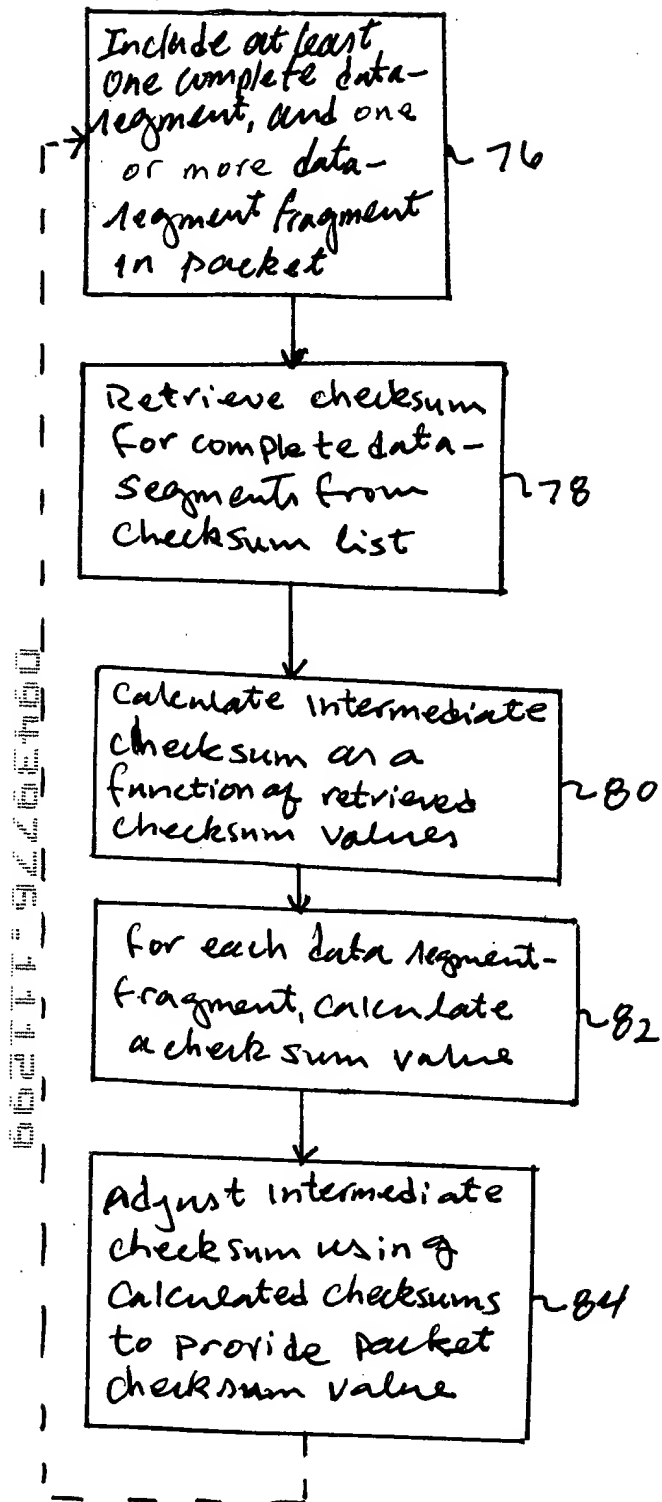 Include at least
one complete data-
segment, and one
or more data-
segment fragment
in packet
76
Retrieve checksum
for complete data-
segments from
checksum list
78
Calculate intermediate
checksum as a
function of retrieved
checksum values
80
for each data segment-
fragment, calculate
a check sum value
82
Adjust intermediate
checksum using
calculated checksums
to provide packet
checksum value
84
09439776.111299